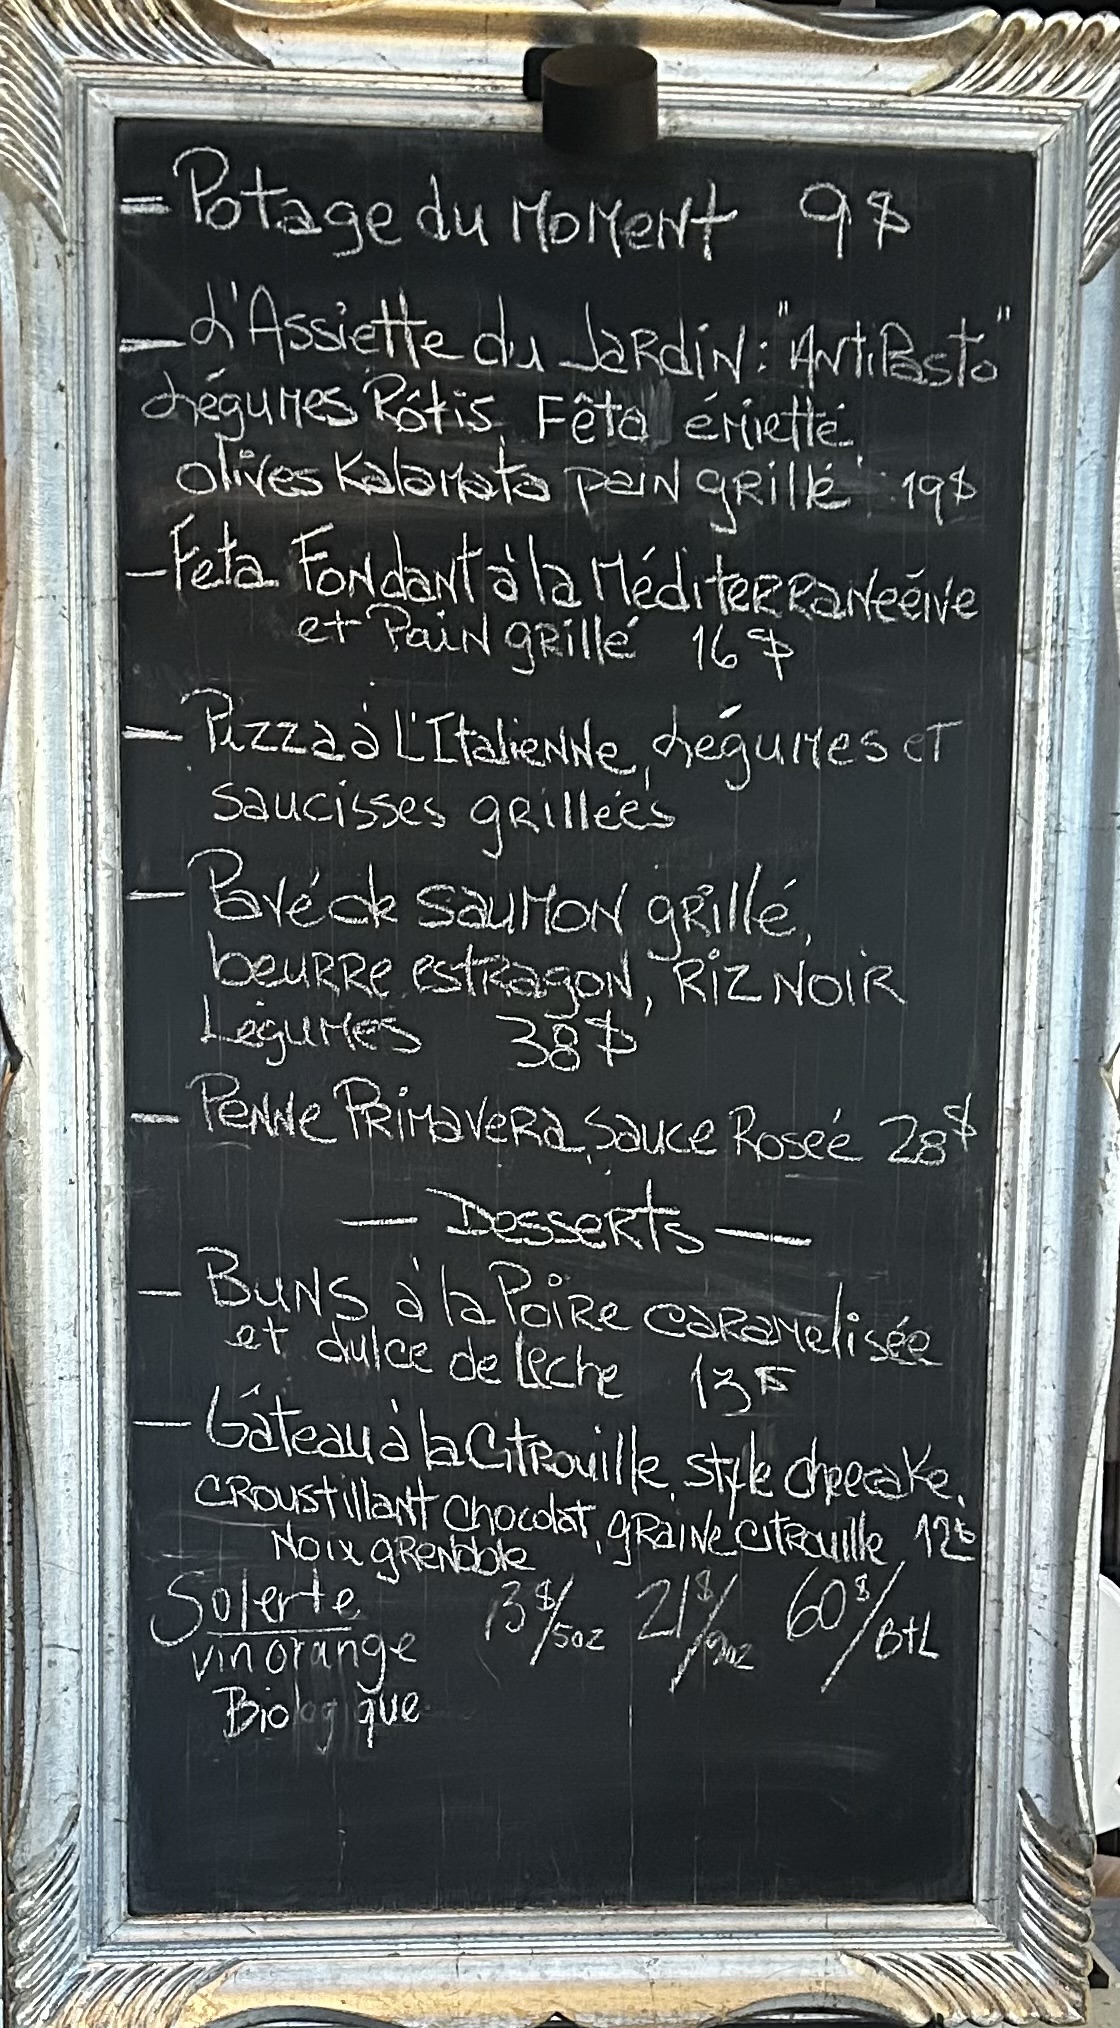 - Potage du Moment 9$
- L'Assiette du Jardin : "AntiPasto"
Légumes Rôtis, Fêta émietté
olives Kalamata pain grillé 19$
- Feta Fondant à la Méditerranéene
et Pain grillé 16$
- Pizza à L'Italienne, Légumes et
saucisses grillées
- Pavé de saumon grillé,
beurre estragon, Riz Noir
Légumes 38$
- Penne Primavera, Sauce Rosée 28$
- Desserts -
- Buns à la Poire caramelisée
et dulce de leche 13$
- Gâteau à la Citrouille, style cheecake,
croustillant chocolat, graine citrouille, 12$
Noix grenoble
Solerte 13$/5oz 21$/9oz 60$/Btl
vin orange
Biologique